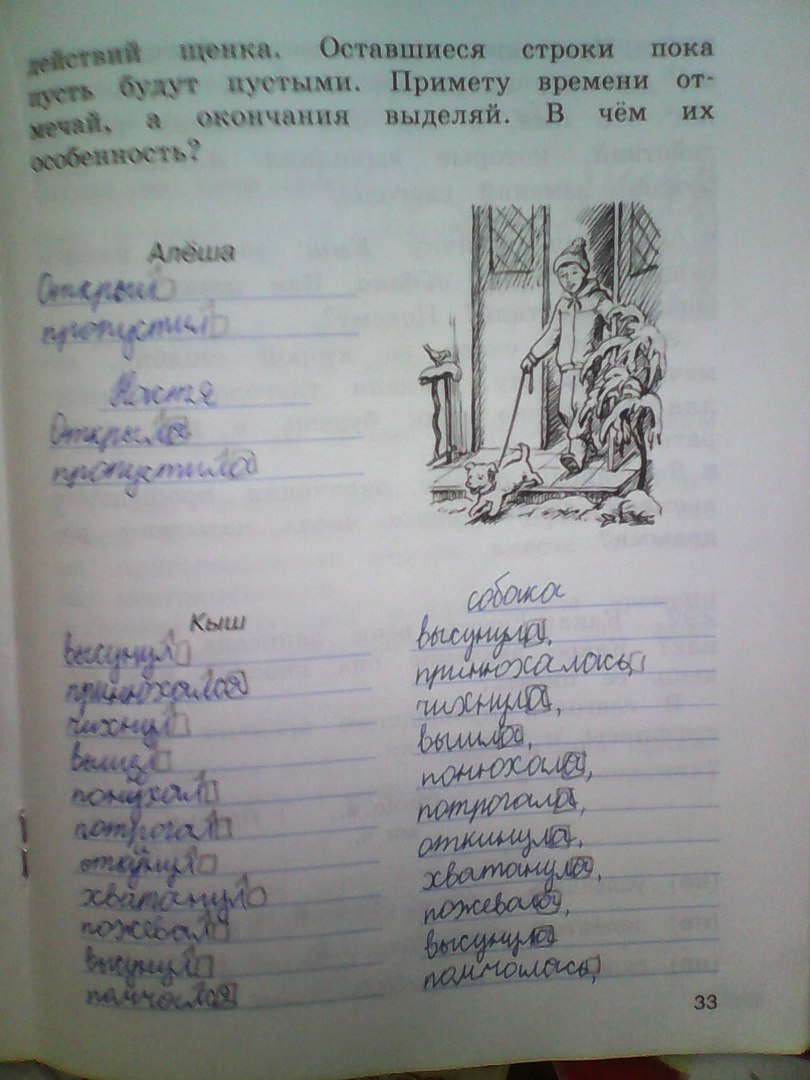 действий щенка. Оставшиеся строки пока
пусть будут пустыми. Примету времени от-
мечай, а окончания выделяй. В чём их
особенность?
Алёша
Открыл
пропустил
Настя
Открыла
пропустила
Кыш
высунул
принюхался
чихнул
вышел
понюхал
потрогал
откинул
хватанул
пожевал
высунул
помчался
собака
высунула,
принюхалась,
чихнула,
вышла,
понюхала,
потрогала,
откинула,
хватанула,
пожевала,
высунула
помчалась,
33